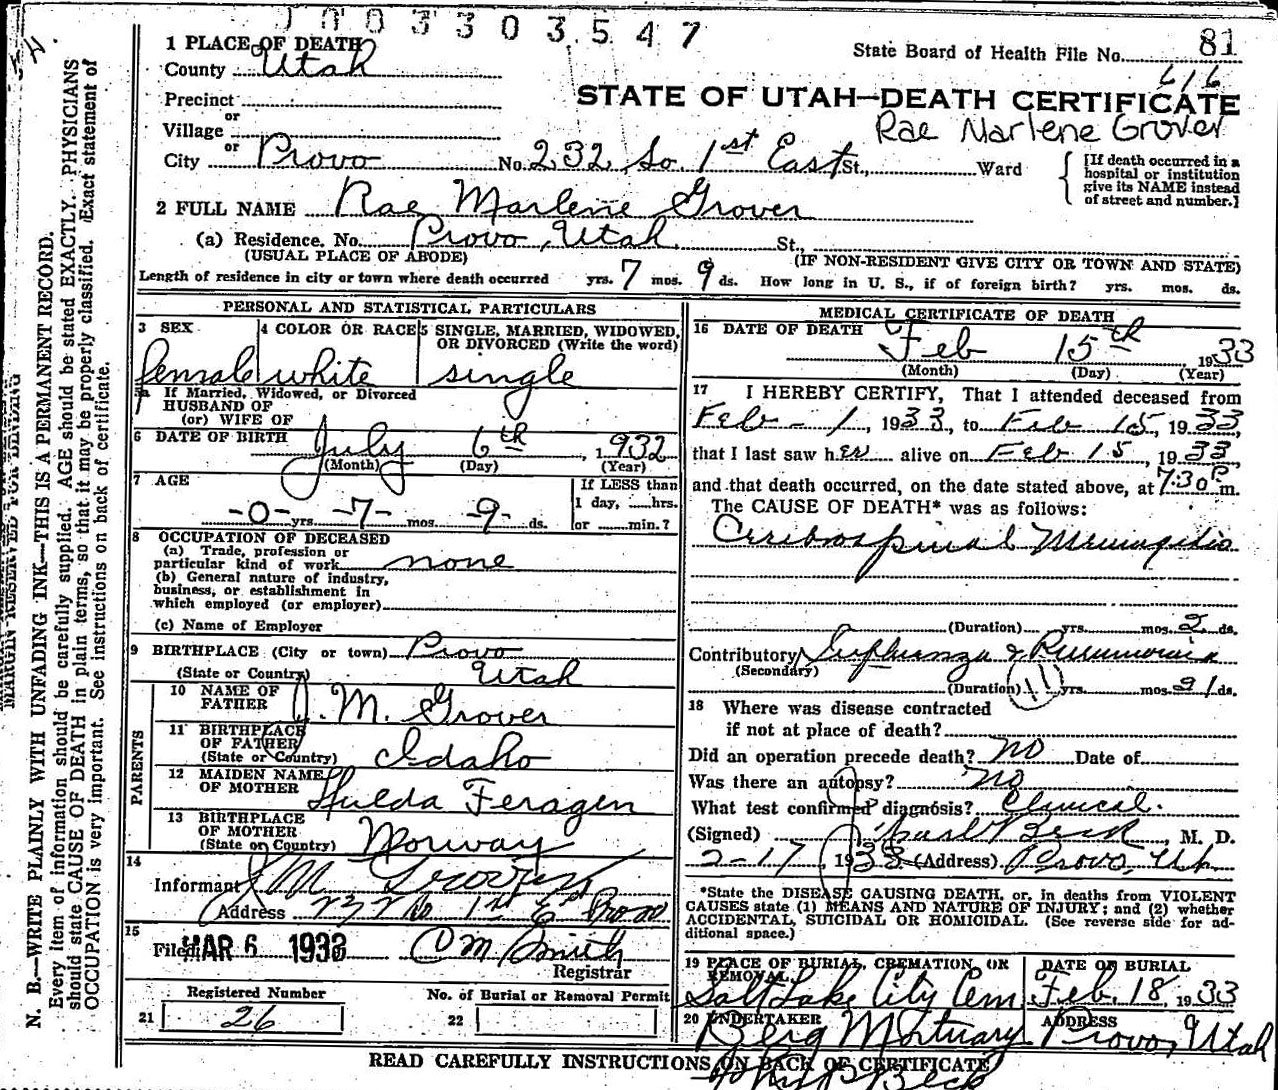 1003303547
State Board of Health File No. 81
616
STATE OF UTAH—DEATH CERTIFICATE
Rae Marlene Grover
1 PLACE OF DEATH
County Utah
Precinct
or
Village
or
City Provo No. 232 So. 1st East St., Ward
[If death occurred in a
hospital or institution
give its NAME instead
of street and number.]
2 FULL NAME Rae Marlene Grover
(a) Residence. No. Provo, Utah St.,
(USUAL PLACE OF ABODE) (IF NON-RESIDENT GIVE CITY OR TOWN AND STATE)
Length of residence in city or town where death occurred yrs. 7 mos. 9 ds. How long in U. S., if of foreign birth? yrs. mos. ds.
PERSONAL AND STATISTICAL PARTICULARS
3 SEX 4 COLOR OR RACE 5 SINGLE, MARRIED, WIDOWED,
OR DIVORCED (Write the word)
female white single
5a If Married, Widowed, or Divorced
HUSBAND OF
(or) WIFE OF
6 DATE OF BIRTH July 6th, 1932
(Month) (Day) (Year)
7 AGE If LESS than
1 day, hrs.
-0- yrs. -7- mos. -9- ds. or min.?
8 OCCUPATION OF DECEASED
(a) Trade, profession or
particular kind of work none
(b) General nature of industry,
business, or establishment in
which employed (or employer)
(c) Name of Employer
9 BIRTHPLACE (City or town) Provo
(State or Country) Utah
PARENTS
10 NAME OF
FATHER J. M. Grover
11 BIRTHPLACE
OF FATHER
(State or Country) Idaho
12 MAIDEN NAME
OF MOTHER Hulda Feragen
13 BIRTHPLACE
OF MOTHER
(State or Country) Norway
14
Informant J M Grover
Address 1st E Provo
15
Filed MAR 6 1933 O M Smith
Registrar
Registered Number No. of Burial or Removal Permit
21 26 22
MEDICAL CERTIFICATE OF DEATH
16 DATE OF DEATH Feb 15th 1933
(Month) (Day) (Year)
17 I HEREBY CERTIFY, That I attended deceased from
Feb - 1, 1933, to Feb 15, 1933,
that I last saw her alive on Feb 15, 1933
and that death occurred, on the date stated above, at 7:30 P m.
The CAUSE OF DEATH* was as follows:
Cerebrospinal Meningitis
(Duration) yrs. mos. 2 ds.
Contributory Influenza & Pneumonia
(Secondary)
(Duration) 11 yrs. mos. 21 ds.
18 Where was disease contracted
if not at place of death?
Did an operation precede death? No Date of
Was there an autopsy? no
What test confirmed diagnosis? Clinical.
(Signed) Beck, M. D.
2-17, 1933 (Address) Provo, Ut.
*State the DISEASE CAUSING DEATH, or, in deaths from VIOLENT
CAUSES state (1) MEANS AND NATURE OF INJURY; and (2) whether
ACCIDENTAL, SUICIDAL OR HOMICIDAL. (See reverse side for ad-
ditional space.)
19 PLACE OF BURIAL, CREMATION, OR DATE OF BURIAL
REMOVAL
Salt Lake City Cem Feb. 18, 1933
20 UNDERTAKER ADDRESS
Berg Mortuary Provo, Utah
READ CAREFULLY INSTRUCTIONS ON BACK OF CERTIFICATE
Beck
MARGIN RESERVED FOR BINDING
N. B.—WRITE PLAINLY WITH UNFADING INK—THIS IS A PERMANENT RECORD.
Every item of information should be carefully supplied. AGE should be stated EXACTLY. PHYSICIANS
should state CAUSE OF DEATH in plain terms, so that it may be properly classified. Exact statement of
OCCUPATION is very important. See instructions on back of certificate.